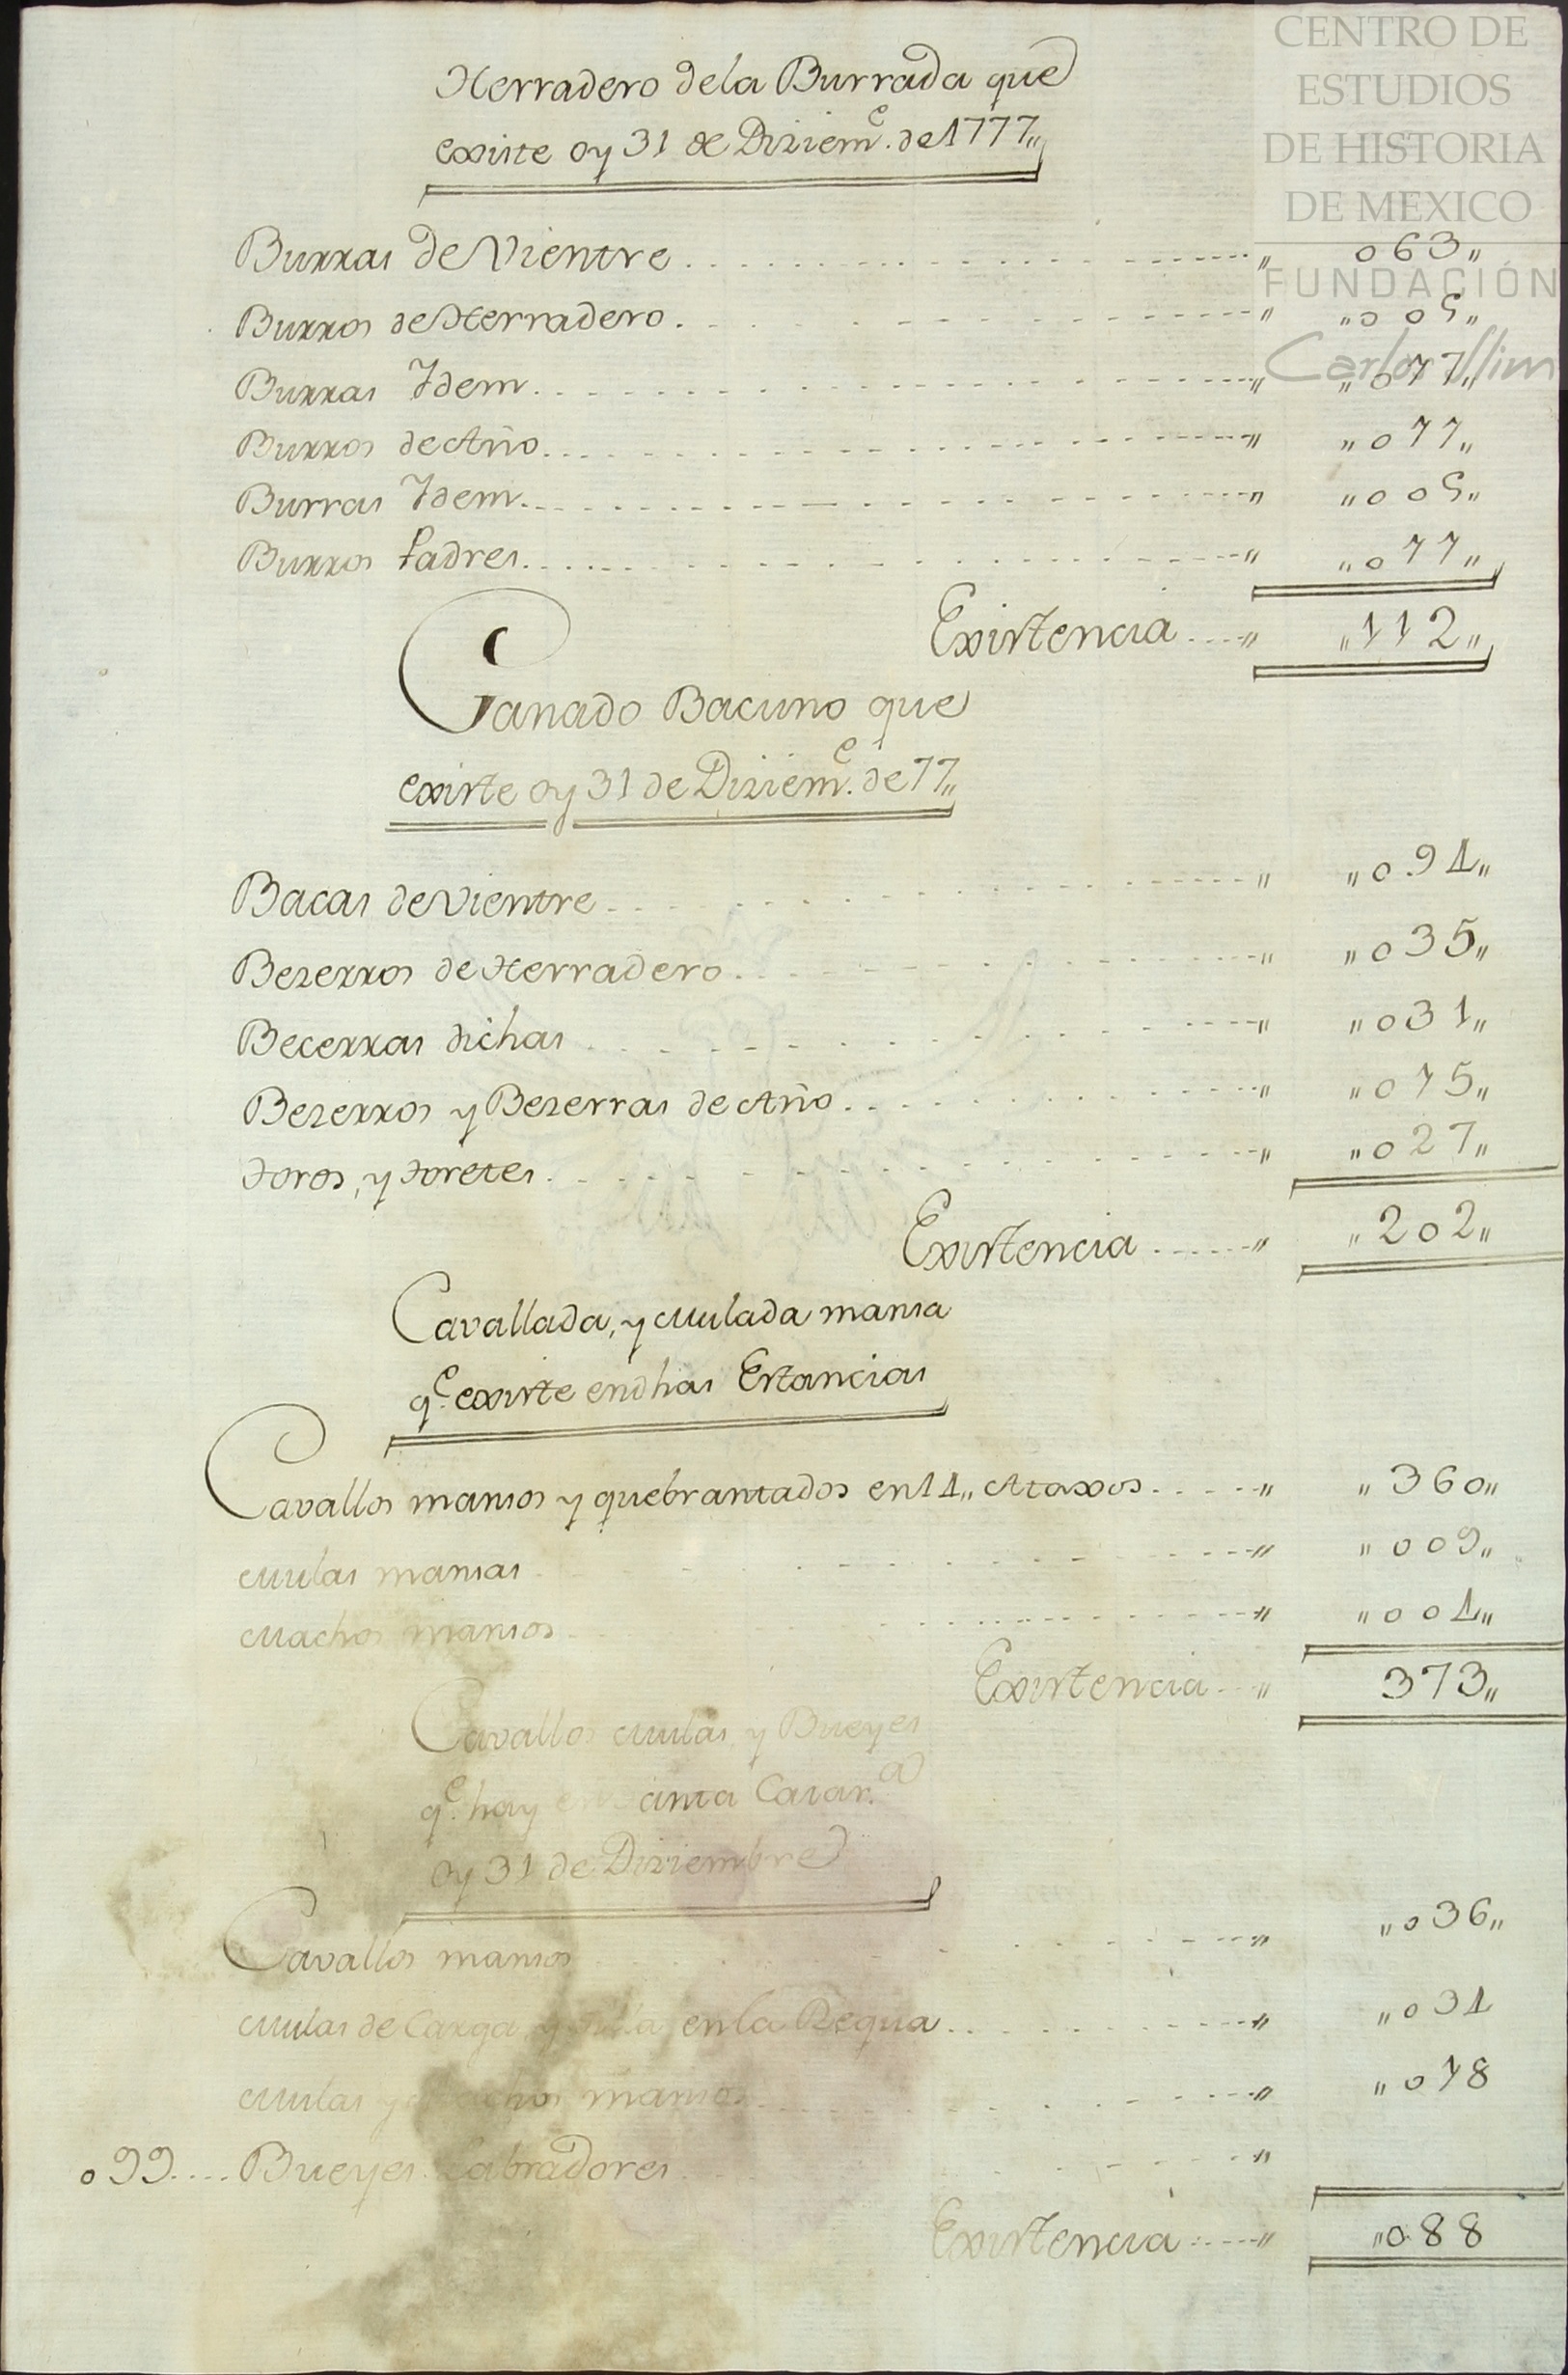 Herradero dela Burrada que
existe oy 31 de Diziem.e de 1777,,
Burras de Vientre ,, 063,,
Burros de Herradero ,, ,,005,,
Burras Ydem ,, ,,017,,
Burros de Año ,, ,,011,,
Burras Ydem ,, ,,005,,
Burros Padres ,, ,,011,,
Existencia ,, ,,112,,
Ganado Bacuno que
existe oy 31 de Diziem.e de 77,,
Bacas de Vientre ,, ,,094,,
Bezerros de Herradero ,, ,,035,,
Becerras dichas ,, ,,031,,
Bezerros y Bezerras de Año ,, ,,015,,
Toros, y Toretes ,, ,,027,,
Existencia ,, ,,202,,
Cavallada, y Mulada mansa
q.e existe en dhas Estancias
Cavallos mansos y quebrantados en 14,, Ataxos ,, ,,360,,
Mulas mansas ,, ,,009,,
Machos mansos ,, ,,004,,
Existencia ,, 373,,
Cavallos Mulas, y Bueyes
q.e hay en Santa Catar.a
oy 31 de Diziembre
Cavallos mansos ,, ,,036,,
Mulas de Carga y silla en la Requa ,, ,,034
Mulas y Machos mansos ,, ,,018
099 Bueyes Labradores ,,
Existencia ,, ,,088
CENTRO DE
ESTUDIOS
DE HISTORIA
DE MEXICO
FUNDACIÓN
Carlos Slim